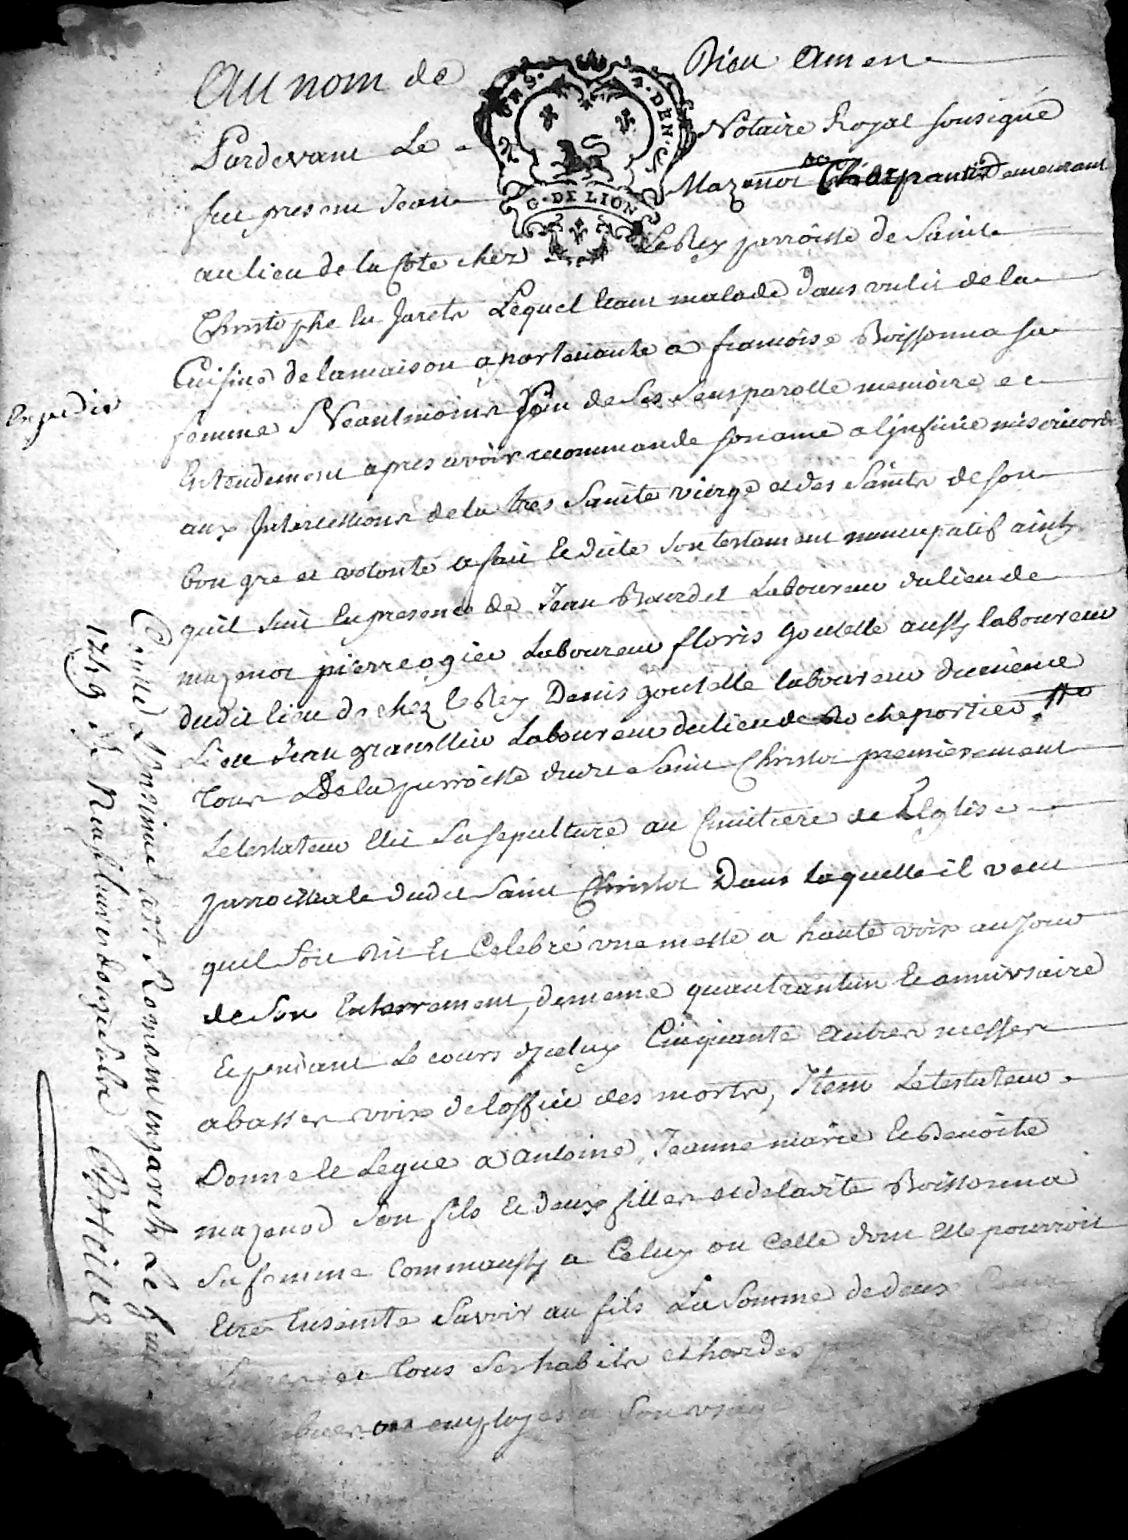 Au nom de Dieu Amen
Pardevant Le Notaire Royal sousigné
fut present Jean Mazenot Charpantier demeurant
au lieu de la Cote chez Le Rey parroisse de Saint
Christophe en Jarets Lequel etant malade dans un lit de la
Cuisine de la maison apartenante a francoise Boissonna sa
femme Neantmoins sain de ses sens parolle memoire et
Entendement apres avoir recommande son ame a l'infinie misericorde
aux Intercessions de la tres Sainte vierge et des Saints de son
bon gre et volonté a fait et dicte son testament nuncupatif ainsy
quil suit En presence de Jean Bourdet Laboureur du lieu de
mazenot pierre ogier Laboureur floris goutelle aussy laboureur
dudit lieu de chez le Rey Denis goutelle laboureur du meme
Lieu Jean Laboureur du lieu de Rocheportier
tous de la parroisse dudit Saint Christot premierement
Le testateur elit sa sepulture au Cimitiere de L'Eglise
parroissiale dudit Saint Christot Dans laquelle il veut
quil soit dit et Celebré une messe a haute voix au jour
de son Enterrement, de meme quarantain et annivrsaire
Et pendant le cours diceluy Cinquante autres messes
a basses voix de loffice des morts, Item Le testateur
Donne et Legue a antoine, Jeanne marie et Benoite
mazenod son fils et deux filles et de ladite Boissonna
sa femme Comm'aussy a Celuy ou Celle dont elle pourroit
Etre Enseinte savoir au fils La somme de deux Cents
Livres et tous ses habits et hardes
employes a son usage
Expedié
Controllé & Insinué a St Romain en jarets Le
1749 Rx Neuf livres douze sols